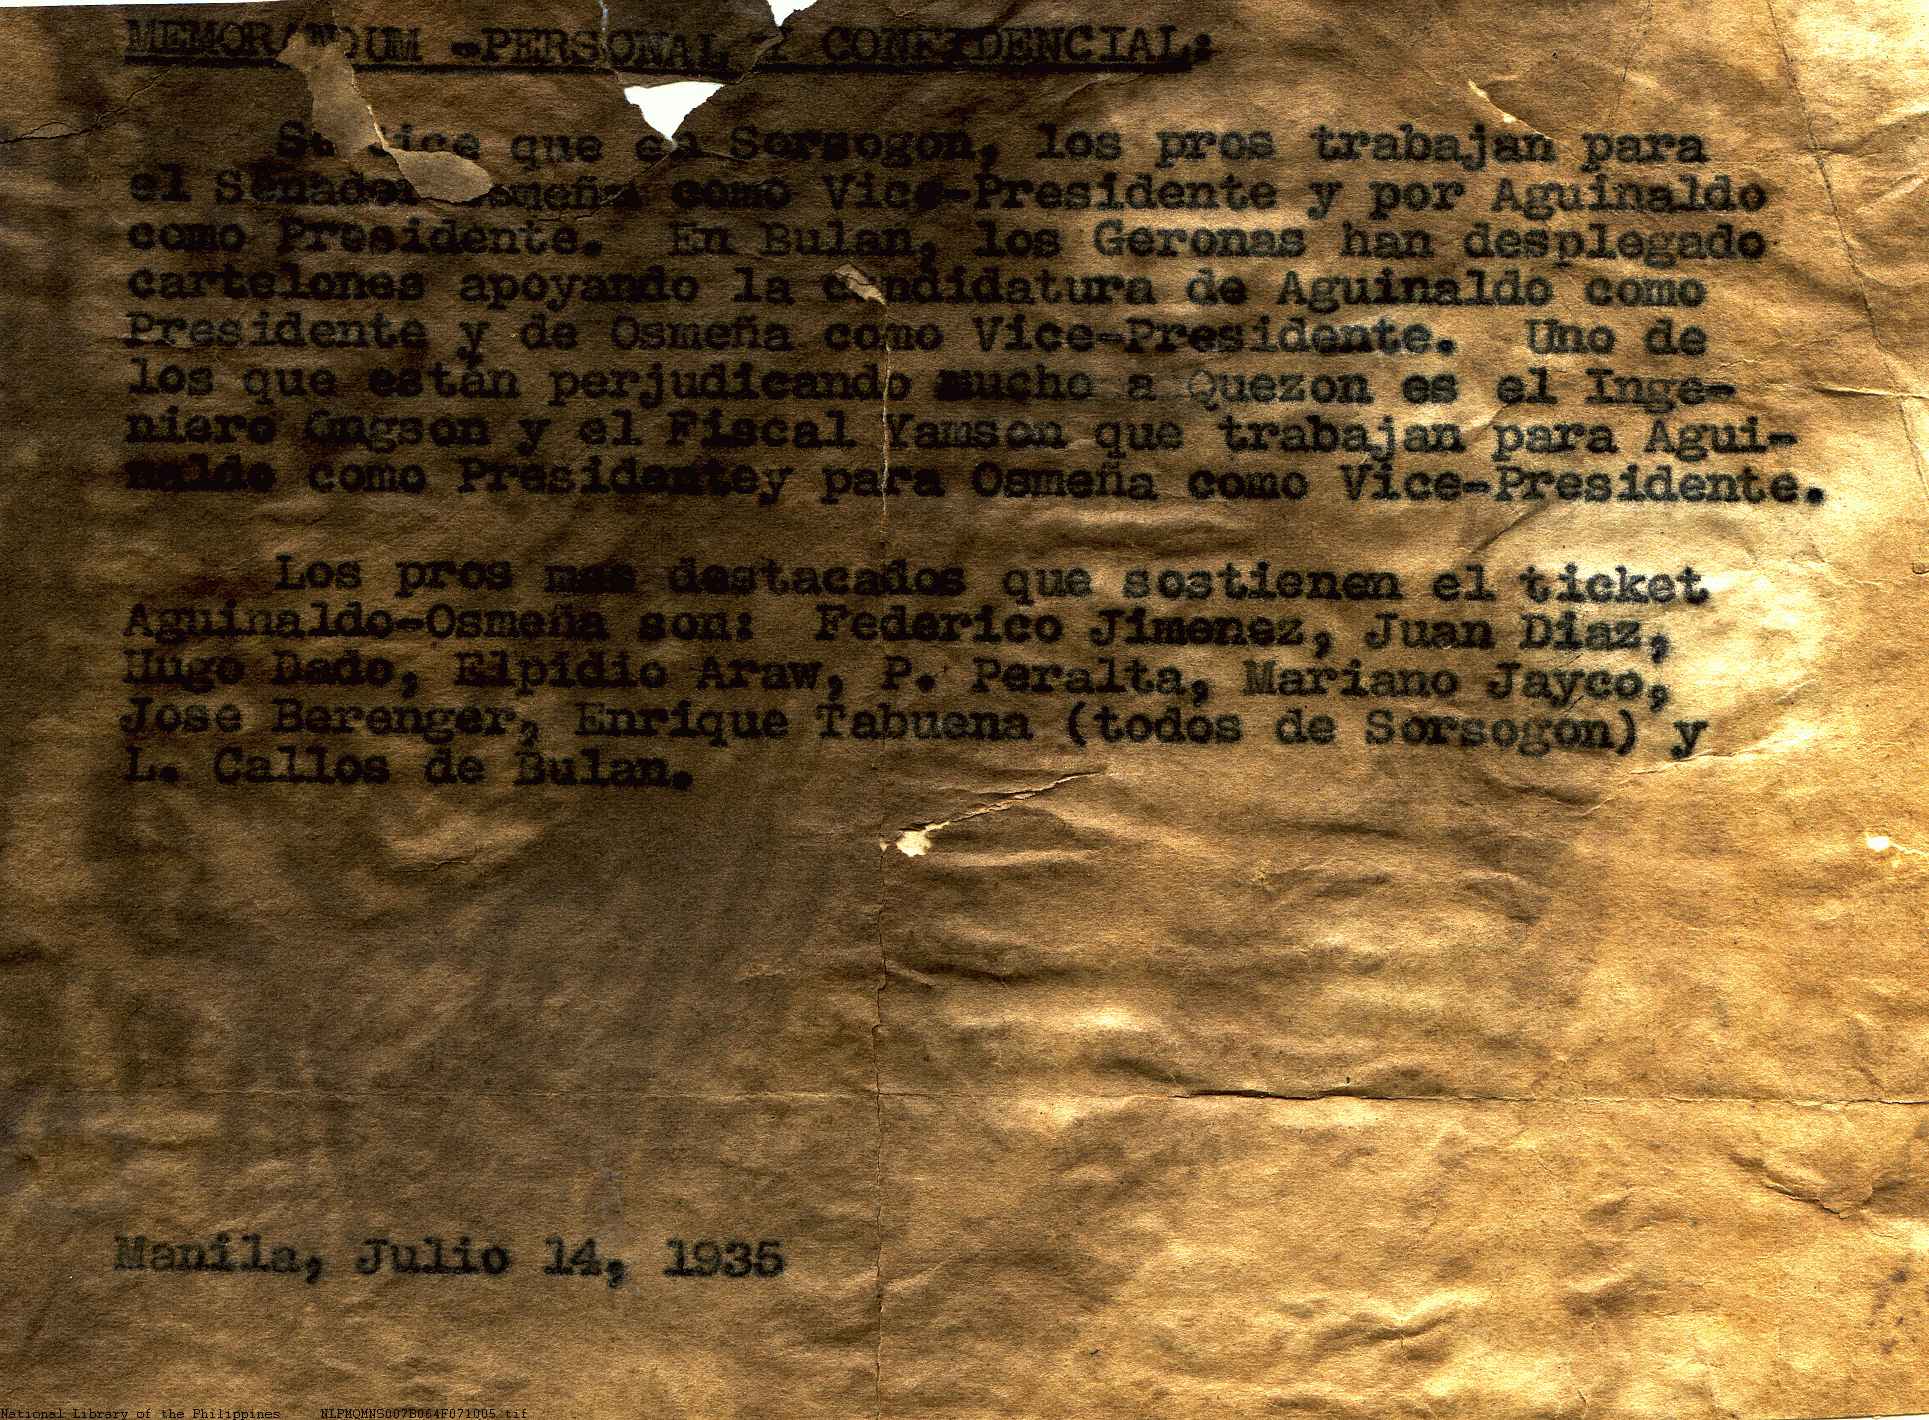 MEMORANDUM -PERSONAL Y CONFIDENCIAL:
Se dice que en Sorsogon, los pros trabajan para
el Senador Osmeña como Vice-Presidente y por Aguinaldo
como Presidente. En Bulan, los Geronas han desplegado
cartelones apoyando la candidatura de Aguinaldo como
Presidente y de Osmeña como Vice-Presidente. Uno de
los que están perjudicando mucho a Quezon es el Inge-
niero Ongson y el Fiscal Yamson que trabajan para Agui-
naldo como Presidentey para Osmeña como Vice-Presidente.
Los pros mas destacados que sostienen el ticket
Aguinaldo-Osmeña son: Federico Jimenez, Juan Diaz,
Hugo Dado, Elpidio Araw, P. Peralta, Mariano Jayco,
Jose Berenger, Enrique Tabuena (todos de Sorsogon) y
L. Callos de Bulan.
Manila, Julio 14, 1935
National Library of the Philippines NLPMQMNS007B064F071005.tif